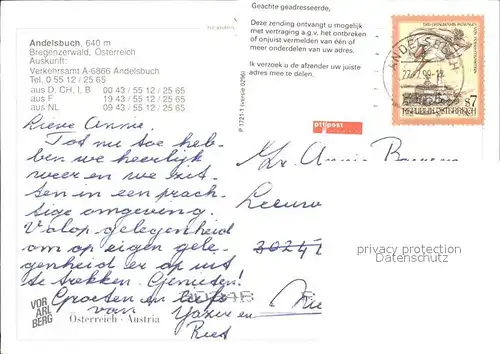 Andelsbuch, 640 m
Bregenzerwald, Österreich
Auskunft:
Verkehrsamt A-6866 Andelsbuch
Tel. 0 55 12 / 25 65
aus D, CH, I, B 00 43 / 55 12 / 25 65
aus F 19 43 / 55 12 / 25 65
aus NL 09 43 / 55 12 / 25 65
Lieve Annie.
Tot nu toe heb-
ben we heerlijk
weer en we zit-
ten in een prach-
tige omgeving.
Volop gelegenheid
om op eigen gele-
genheid er op uit
te trekken. Genieten!
Groeten en liefs
van
Riet
VOR
ARL
BERG
Österreich · Austria
Geachte geadresseerde,
Deze zending ontvangt u mogelijk
met vertraging a.g.v. het ontbreken
of onjuist vermelden van één of
meer onderdelen van uw adres.
Ik verzoek u de afzender uw juiste
adres mee te delen.
P 1721-1 (versie 0296)
ptt post
ANDELSBUCH
S7
REPUBLIK ÖSTERREICH
Annie
Leeuw
privacy protection
Datenschutz